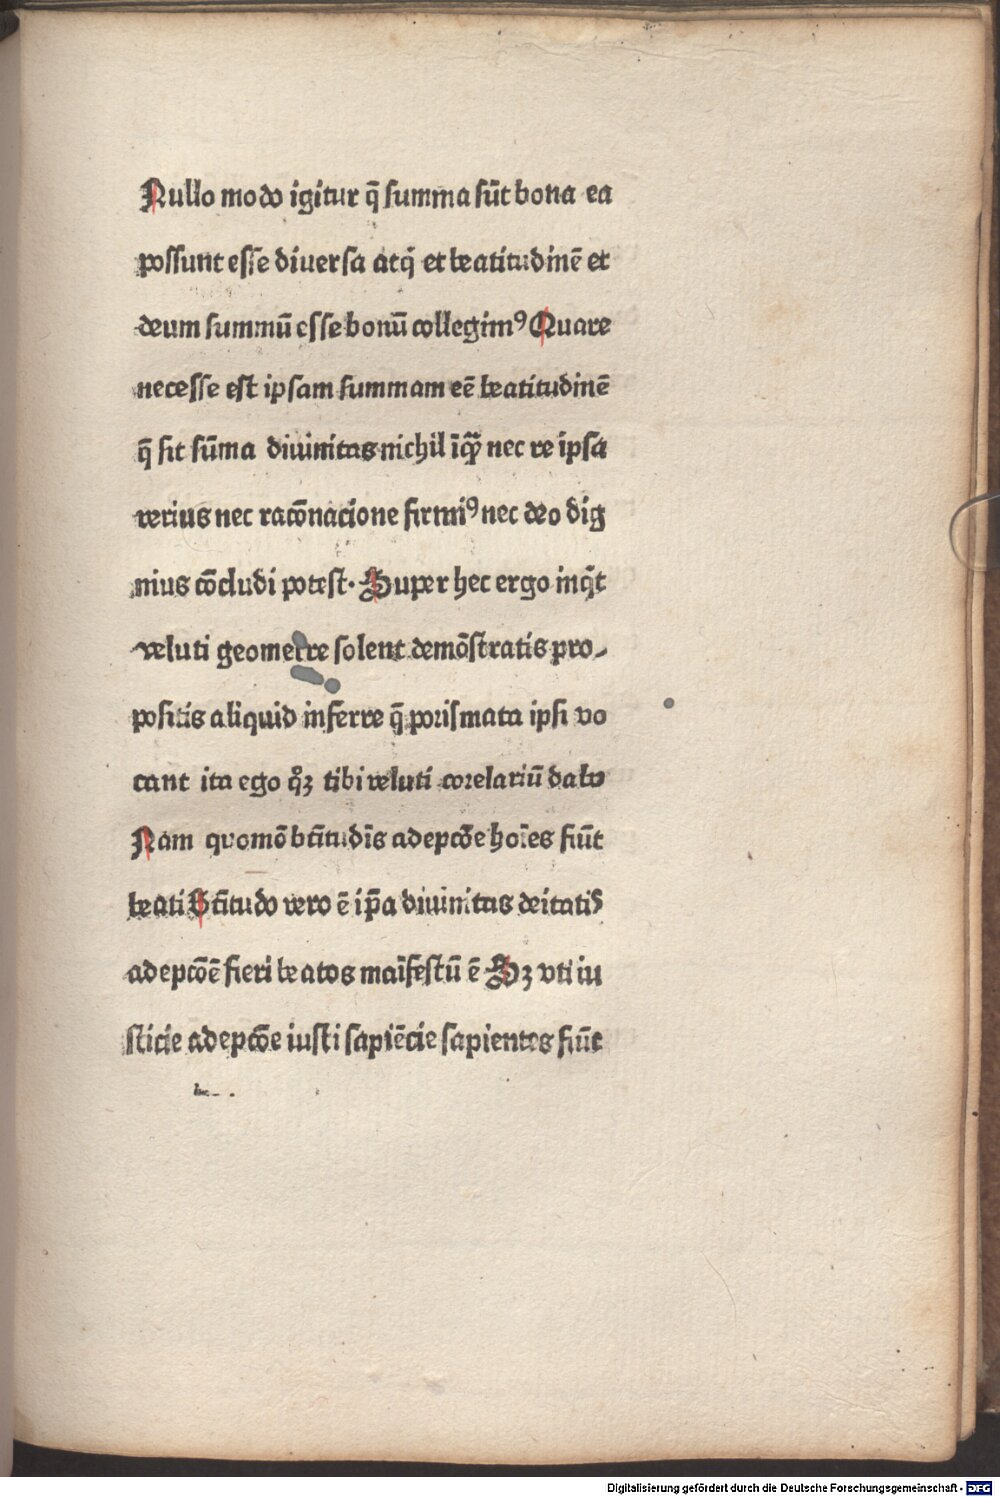 Nullo modo igitur q̄ summa sūt bona ea
possunt esse diuersa atq̄ et beatitudinē et
deum summū esse bonū collegimꝰ Quare
necesse est ipsam summam eē beatitudinē
q̄ sit sūma diuinitas nichil īqͣ nec re ipsa
verius nec racōnacione firmiꝰ nec deo dig
nius cōcludi potest. Super hec ergo inqͥt
veluti geometre solent demōstratis pro-
positis aliquid inferre q̄ porismata ipsi vo
cant ita ego qͦꝫ tibi veluti corelariū dabo
Nam quomō bt̄itudīs adepcōe hoīes fiūt
beati Bt̄itudo vero ē ip̄a diuinitas deitatis
adepcōē fieri beatos maīfestū ē Sꝫ vti iu
sticie adepcōe iusti sapiēcie sapientes fiūt
Digitalisierung gefördert durch die Deutsche Forschungsgemeinschaft - DFG